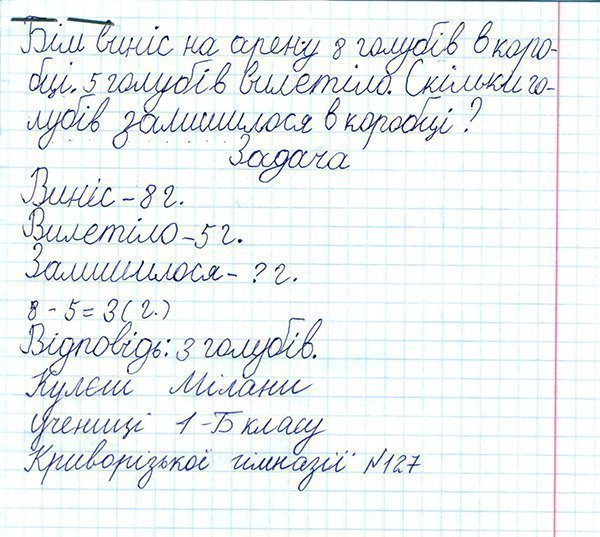 Бім виніс на арену 8 голубів в коро-
бці. 5 голубів вилетіло. Скільки го-
лубів залишилося в коробці?
Задача
Виніс – 8 г.
Вилетіло – 5 г.
Залишилося – ? г.
8 - 5 = 3 (г.)
Відповідь: 3 голубів.
Кулєш Мілани
учениці 1-Б класу
Криворізької гімназії №127